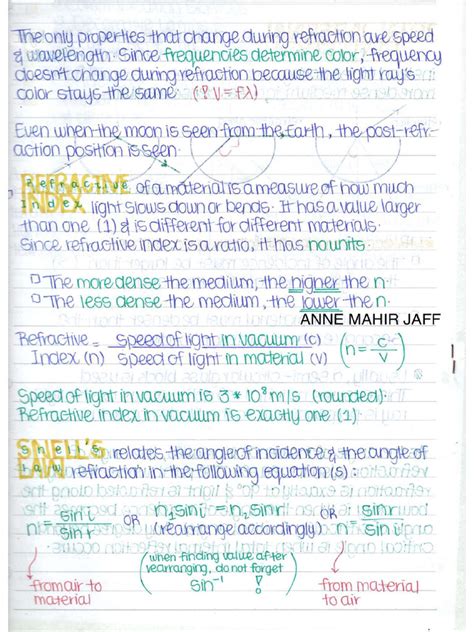 The only properties that change during refraction are speed
& wavelength. Since frequencies determine color, frequency
doesn't change during refraction because the light ray's
color stays the same. (!? V = fλ)
Even when the moon is seen from the Earth, the post-refr-
action position is seen.
REFRACTIVE Refractive of a material is a measure of how much
INDEX Index light slows down or bends. It has a value larger
than one (1) & is different for different materials.
Since refractive index is a ratio, it has no units.
The more dense the medium, the higher the n.
The less dense the medium, the lower the n.
ANNE MAHIR JAFF
Refractive = speed of light in vacuum (c) (n = c/v)
Index (n) speed of light in material (v)
Speed of light in vacuum is 3 * 10⁸ m/s (rounded).
Refractive index in vacuum is exactly one (1).
SNELL'S snell's relates, the angle of incidence & the angle of
LAW Law refraction in the following equation(s):
n = sin i / sin r OR n₁sin i = n₂sin r OR n = sin r / sin i
(rearrange accordingly)
when finding value after
rearranging, do not forget
sin⁻¹ !
from air to
material
from material
to air